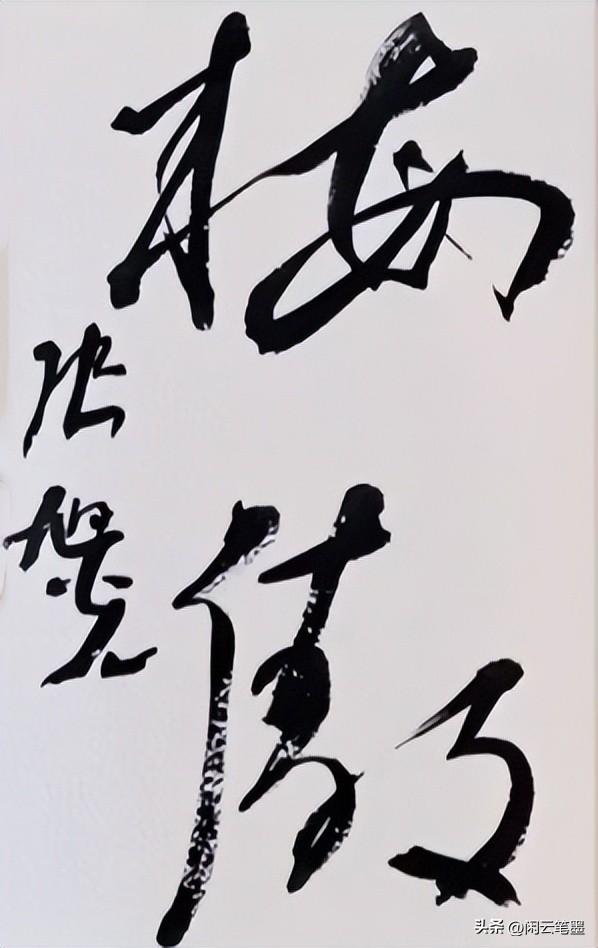 梅傲
张旭光
头条 @闲云笔墨